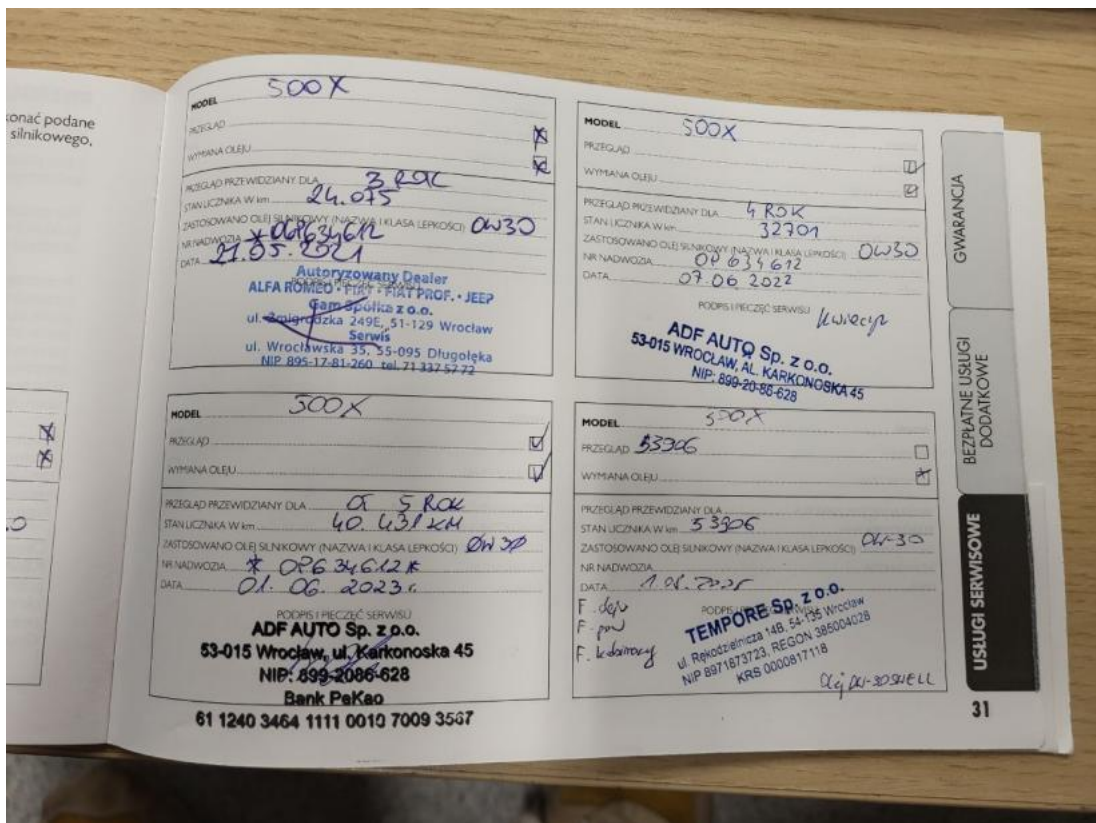 konać podane
silnikowego,
MODEL 500X
PRZEGLĄD
WYMIANA OLEJU
PRZEGLĄD PRZEWIDZIANY DLA 3 ROK
STAN LICZNIKA W km 24.075
ZASTOSOWANO OLEJ SILNIKOWY (NAZWA I KLASA LEPKOŚCI) 0W30
NR NADWOZIA *0P634612
DATA 21.05.2021
PODPIS I PIECZĘĆ SERWISU
Autoryzowany Dealer
ALFA ROMEO • FIAT • FIAT PROF. • JEEP
Gam Spółka z o.o.
ul. Żmigrodzka 249E, 51-129 Wrocław
Serwis
ul. Wrocławska 35, 55-095 Długołęka
NIP 895-17-81-260 tel. 71 337 57 72
MODEL 500X
PRZEGLĄD
WYMIANA OLEJU
PRZEGLĄD PRZEWIDZIANY DLA 4 ROK
STAN LICZNIKA W km 32701
ZASTOSOWANO OLEJ SILNIKOWY (NAZWA I KLASA LEPKOŚCI) 0W30
NR NADWOZIA 0P634612
DATA 07.06.2022
PODPIS I PIECZĘĆ SERWISU
ADF AUTO Sp. z o.o.
53-015 WROCŁAW, AL. KARKONOSKA 45
NIP: 899-20-86-628
MODEL 500X
PRZEGLĄD
WYMIANA OLEJU
PRZEGLĄD PRZEWIDZIANY DLA 5 ROK
STAN LICZNIKA W km 40.431 KM
ZASTOSOWANO OLEJ SILNIKOWY (NAZWA I KLASA LEPKOŚCI) 0W30
NR NADWOZIA * 0P634612*
DATA 01.06.2023r.
PODPIS I PIECZĘĆ SERWISU
ADF AUTO Sp. z o.o.
53-015 Wrocław, ul. Karkonoska 45
NIP: 899-2086-628
Bank PeKao
61 1240 3464 1111 0010 7009 3567
MODEL 500X
PRZEGLĄD 53906
WYMIANA OLEJU
PRZEGLĄD PRZEWIDZIANY DLA
STAN LICZNIKA W km 53906
ZASTOSOWANO OLEJ SILNIKOWY (NAZWA I KLASA LEPKOŚCI) 0W-30
NR NADWOZIA
DATA
F. oleju
F. pow
F. kabinowy
PODPIS
TEMPORE Sp. z o.o.
ul. Rękodzielnicza 14B, 54-135 Wrocław
NIP 8971873723, REGON 385004028
KRS 0000817118
Olej 0W-30 SHELL
GWARANCJA
BEZPŁATNE USŁUGI
DODATKOWE
USŁUGI SERWISOWE
31